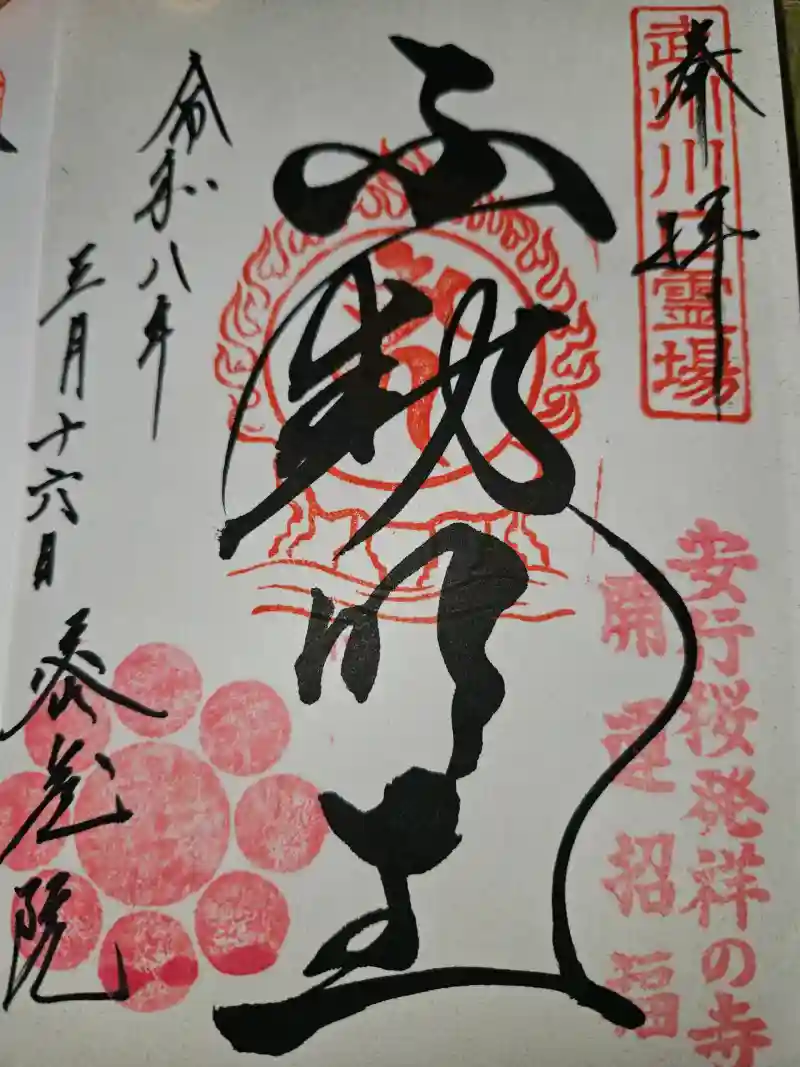 奉拝
武州川口霊場
安行桜発祥の寺
開運招福
不動明王
令和八年
三月十六日
密蔵院